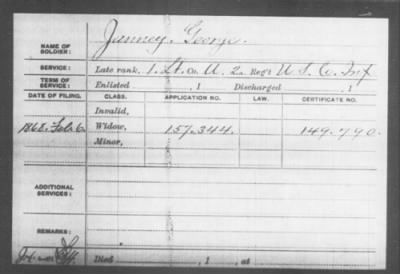 NAME OF SOLDIER: Janney, George.
SERVICE: Late rank, 1. Lt. Co. A. 2. Reg't U S. C. Inf
TERM OF SERVICE: Enlisted , 1 Discharged , 1
DATE OF FILING. CLASS. APPLICATION NO. LAW. CERTIFICATE NO.
Invalid,
1868. Feb. 6. Widow, 157.344. 149.790.
Minor,
ADDITIONAL SERVICES:
REMARKS:
Died , 1 , at